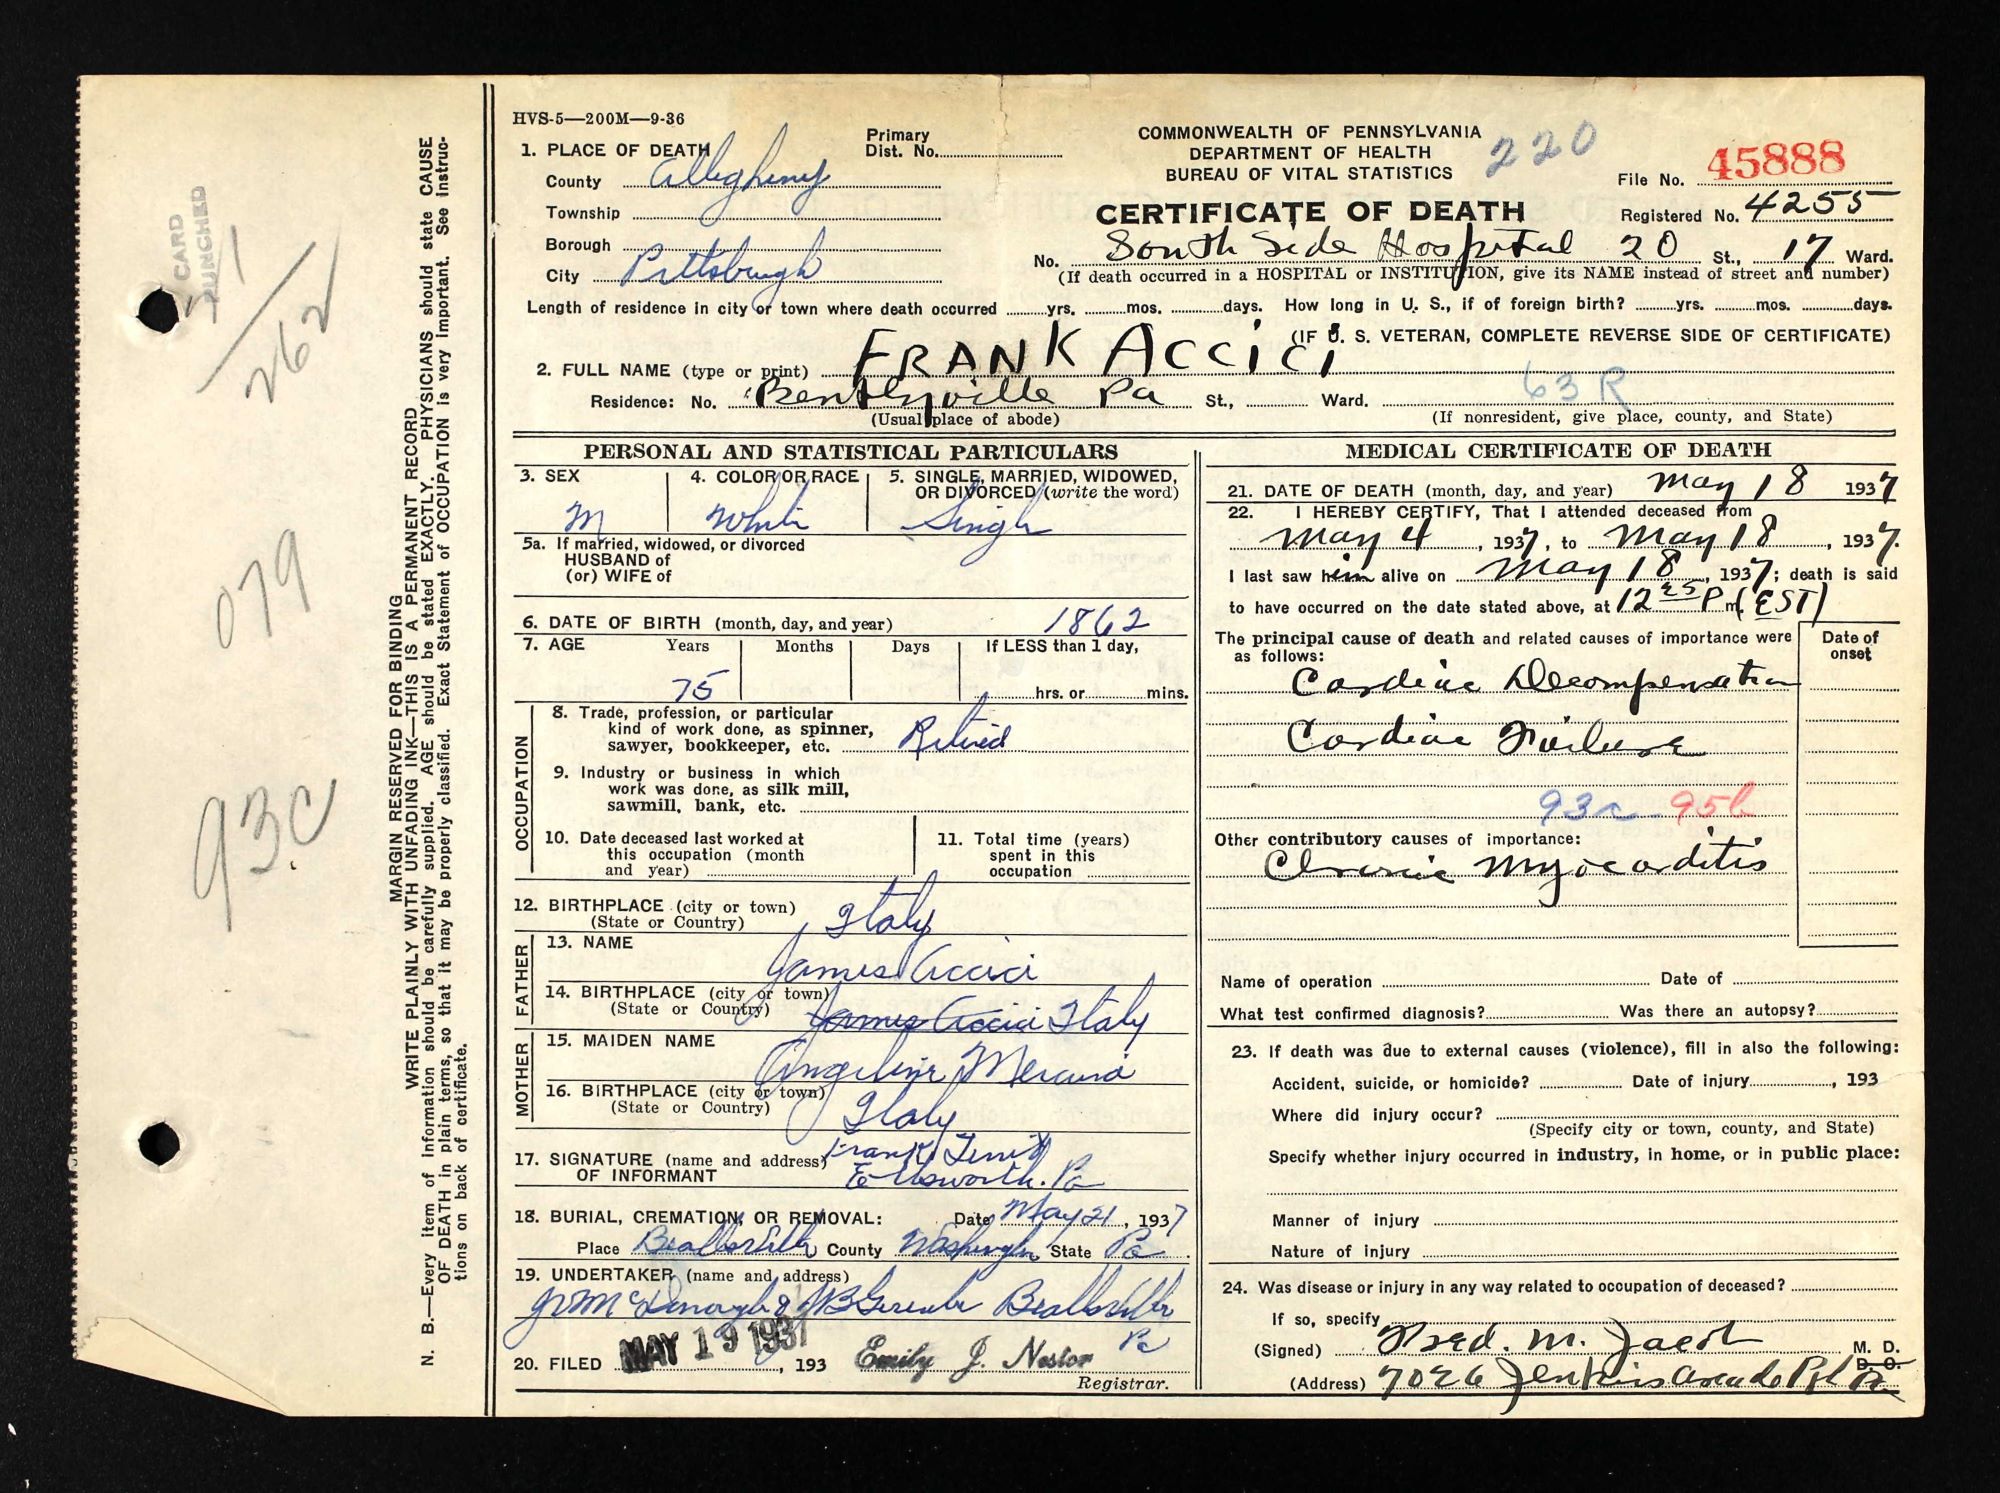 HVS-5—200M—9-36
1. PLACE OF DEATH
County Allegheny
Township
Borough
City Pittsburgh
Primary
Dist. No.
COMMONWEALTH OF PENNSYLVANIA
DEPARTMENT OF HEALTH
BUREAU OF VITAL STATISTICS
220
CERTIFICATE OF DEATH
File No. 45888
Registered No. 4255
No. South Side Hospital 20 St., 17 Ward.
(If death occurred in a HOSPITAL or INSTITUTION, give its NAME instead of street and number)
Length of residence in city or town where death occurred yrs. mos. days. How long in U. S., if of foreign birth? yrs. mos. days.
(IF U. S. VETERAN, COMPLETE REVERSE SIDE OF CERTIFICATE)
2. FULL NAME (type or print) FRANK ACCICI
63 R
Residence: No. Bentleyville Pa St., Ward.
(Usual place of abode) (If nonresident, give place, county, and State)
PERSONAL AND STATISTICAL PARTICULARS
3. SEX
M
4. COLOR OR RACE
White
5. SINGLE, MARRIED, WIDOWED,
OR DIVORCED (write the word)
Single
5a. If married, widowed, or divorced
HUSBAND of
(or) WIFE of
6. DATE OF BIRTH (month, day, and year) 1862
7. AGE Years Months Days If LESS than 1 day,
75 hrs. or mins.
OCCUPATION
8. Trade, profession, or particular
kind of work done, as spinner,
sawyer, bookkeeper, etc. Retired
9. Industry or business in which
work was done, as silk mill,
sawmill, bank, etc.
10. Date deceased last worked at
this occupation (month
and year)
11. Total time (years)
spent in this
occupation
12. BIRTHPLACE (city or town)
(State or Country) Italy
FATHER
13. NAME
James Accici
14. BIRTHPLACE (city or town)
(State or Country) James Accici Italy
MOTHER
15. MAIDEN NAME
Angeline
16. BIRTHPLACE (city or town)
(State or Country) Italy
17. SIGNATURE (name and address) Frank
OF INFORMANT Ellsworth. Pa
18. BURIAL, CREMATION, OR REMOVAL: Date May 21, 1937
Place Beallsville County Washington State Pa.
19. UNDERTAKER (name and address)
McDonough & JB Beallsville
Pa
20. FILED MAY 19 1937, 193 Emily J. Nestor
Registrar.
MEDICAL CERTIFICATE OF DEATH
21. DATE OF DEATH (month, day, and year) May 18 1937
22. I HEREBY CERTIFY, That I attended deceased from
May 4, 1937, to May 18, 1937.
I last saw him alive on May 18, 1937; death is said
to have occurred on the date stated above, at 12 25 P m. (EST)
The principal cause of death and related causes of importance were
as follows:
Date of
onset
Cardiac Decompensation
Cardiac Failure
93c 95b
Other contributory causes of importance:
Chronic Myocarditis
Name of operation Date of
What test confirmed diagnosis? Was there an autopsy?
23. If death was due to external causes (violence), fill in also the following:
Accident, suicide, or homicide? Date of injury, 193
Where did injury occur?
(Specify city or town, county, and State)
Specify whether injury occurred in industry, in home, or in public place:
Manner of injury
Nature of injury
24. Was disease or injury in any way related to occupation of deceased?
If so, specify
(Signed) Fred. M. Jacob M. D.
D. O.
(Address) 7026 Jenkins Arcade Pgh Pa
MARGIN RESERVED FOR BINDING
WRITE PLAINLY WITH UNFADING INK—THIS IS A PERMANENT RECORD
N. B.—Every item of information should be carefully supplied. AGE should be stated EXACTLY. PHYSICIANS should state CAUSE
OF DEATH in plain terms, so that it may be properly classified. Exact Statement of OCCUPATION is very important. See instruc-
tions on back of certificate.
CARD
PUNCHED
262
079
93c